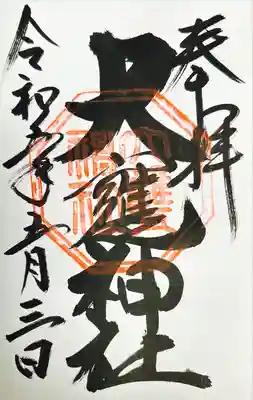 奉拝
大甕神社
令和年五月三日